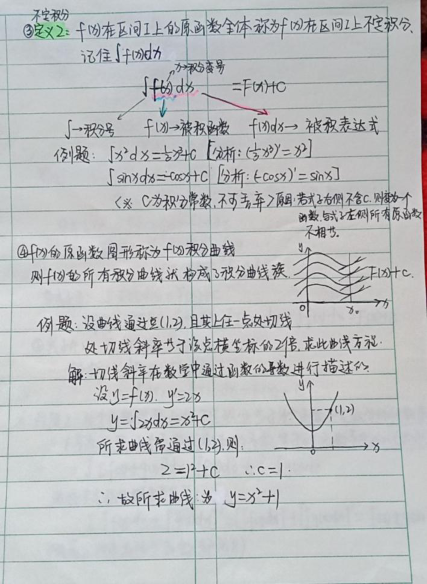 不定积分
③定义2: f(x)在区间I上的原函数全体称为f(x)在区间I上不定积分,
记住∫f(x)dx
x→积分变号
∫f(x)dx = F(x)+C
∫→积分号 f(x)→被积函数 f(x)dx→被积表达式
例题: ∫x²dx=⅓x³+C [分析:(⅓x³)'=x²]
∫sinxdx=-cosx+C [分析:(-cosx)'=sinx]
<※ C为积分常数,不可丢弃>原因:若式子右侧不含C,则变为一个
函数,与式子左侧所有原函数
不相节.
④f(x)的原函数图形称为f(x)积分曲线
则f(x)的所有积分曲线状构成了积分曲线族.
y
F(x)+C.
0 x₀ x
例题:设曲线通过点(1,2),且其上任一点处切线
处切线斜率等于该点横坐标的2倍,求此曲线方程.
解:切线斜率在数学中通过函数的导数进行描述的
设y=f(x). y'=2x
y=∫2xdx=x²+C
所求曲线需通过(1,2),则:
2=1²+C ∴C=1.
∴故所求曲线为 y=x²+1
y
(1,2)
x